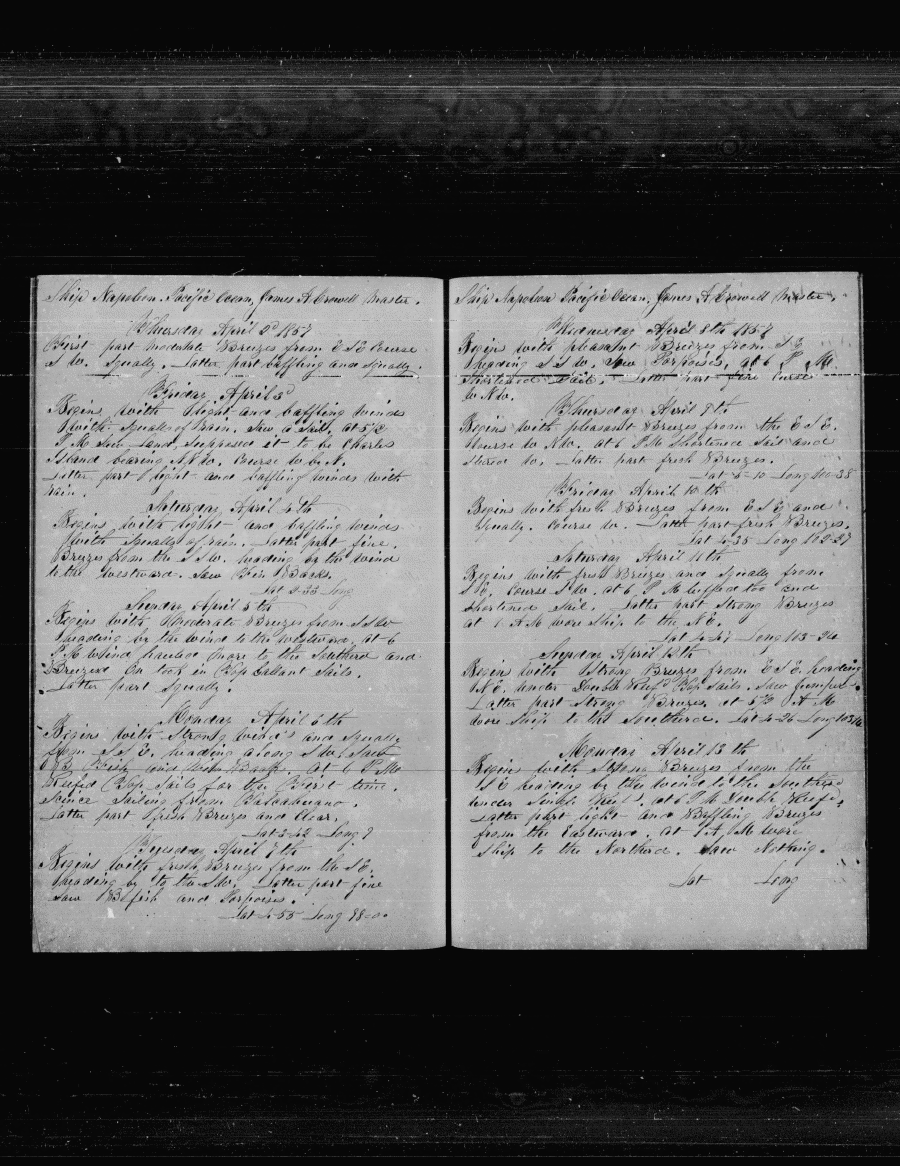 Ship Napoleon Pacific Ocean, James A Crowell Master.
Thursday April 2d 1857
First part Moderate Breezes from E S E Course
S W. Squally. Latter part baffling and Squally.
Friday April 3
Begins with light and baffling winds
with Squales of Rain. Saw a Sail, at 5
P M Saw Land, Suppased it to be Charles
Island bearing Course W by N.
Latter part light and baffling winds with
rain.
Saturday April 4th
Begins with light and baffling winds
with Squally of rain. Latter part fine
Breezes from the S S W. heading by the wind
to the westward. Saw Fin Backs.
Lat 2-33 Long
Sunday April 5th
Begins with Moderate Breezes from S S W
heading by the wind to the westward, at 6
P M wind hauled more to the Southerd and
Breezed On took in Top Gallant Sails.
Latter part Squally.
Monday April 6th
Begin with Strong wind's and Squally
from S S E. heading along S W. Saw
B Fish and Back. At 6 P M
Reefed Top Sails for the First time.
Since Sailing from
Latter part fresh Breezes and Clear.
Lat 3-42 Long ?
Tuesday April 7th
Begins with fresh Breezes from the S E.
heading by to the S W. Latter part fine
Saw B fish and Porpoises.
Lat 4-55 Long 98-0
Ship Napoleon Pacific Ocean, James A Crowell Master.
Wednesday April 8th 1857
Begin with pleasant Breezes from S E
heading S S W. Saw Porpoises, at 6 P M.
Shortened Sail. Latter part fine Course
W N W.
Thursday April 9th
Begins with pleasant Breezes from the E S E.
Course W N W. at 6 P M Shortened Sail and
Steered W. Latter part fresh Breezes.
Lat 5-10 Long 100-38
Friday April 10th
Begins with fresh Breezes from E S E and
Squally. Course W. Latter part fresh Breezes.
Lat 4-35 Long 102-27
Saturday April 11th
Begins with fresh Breezes and Squally from
S E, Course S W. at 6 P M luffed too and
Shortened Sail. Latter part Strong Breezes
at 1 A M wore Ship to the N E.
Lat 4-47 Long 103-24
Sunday April 12th
Begin with Strong Breezes from E S E heading
N E under Double Reef'd Top Sails. Saw
Latter part Strong Breezes. at 5 A M
wore Ship to the Southerd. Lat 4-26 Long 103
Monday April 13th
Begin with Strong Breezes from the
S E heading by the wind to the Southerd
under Single Reef, at 6 P M Double Reef'd,
Latter part light and Baffling Breezes
from the Eastward. at 1 A M wore
Ship to the Northerd. Saw Nothing.
Lat Long